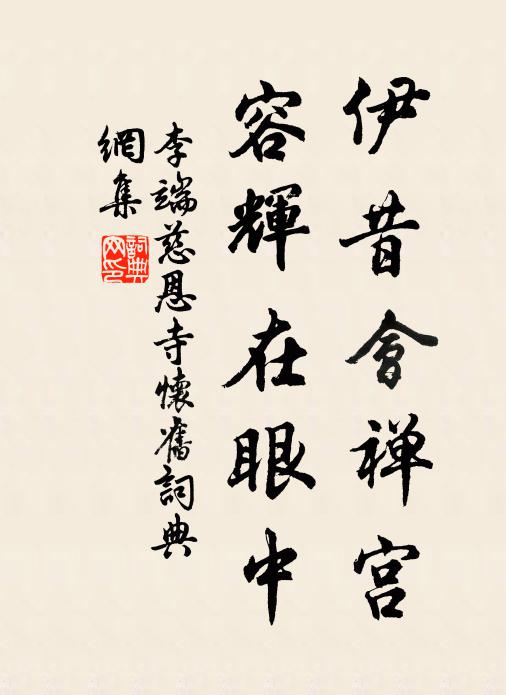 伊昔會禅宫
容輝在眼中
李端慈恩寺懷舊詞典
網集
詞典網印